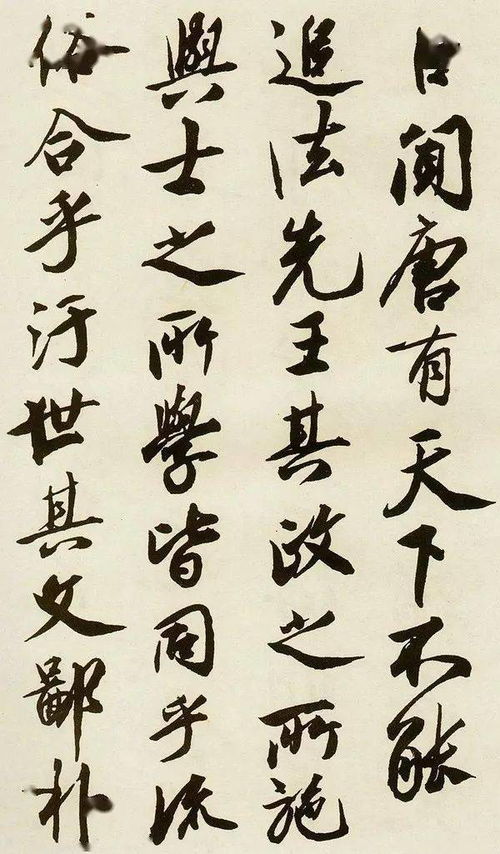 日闻唐有天下不能
追法先王其政之所施
與士之所學皆同乎流
俗合乎汙世其文鄙朴